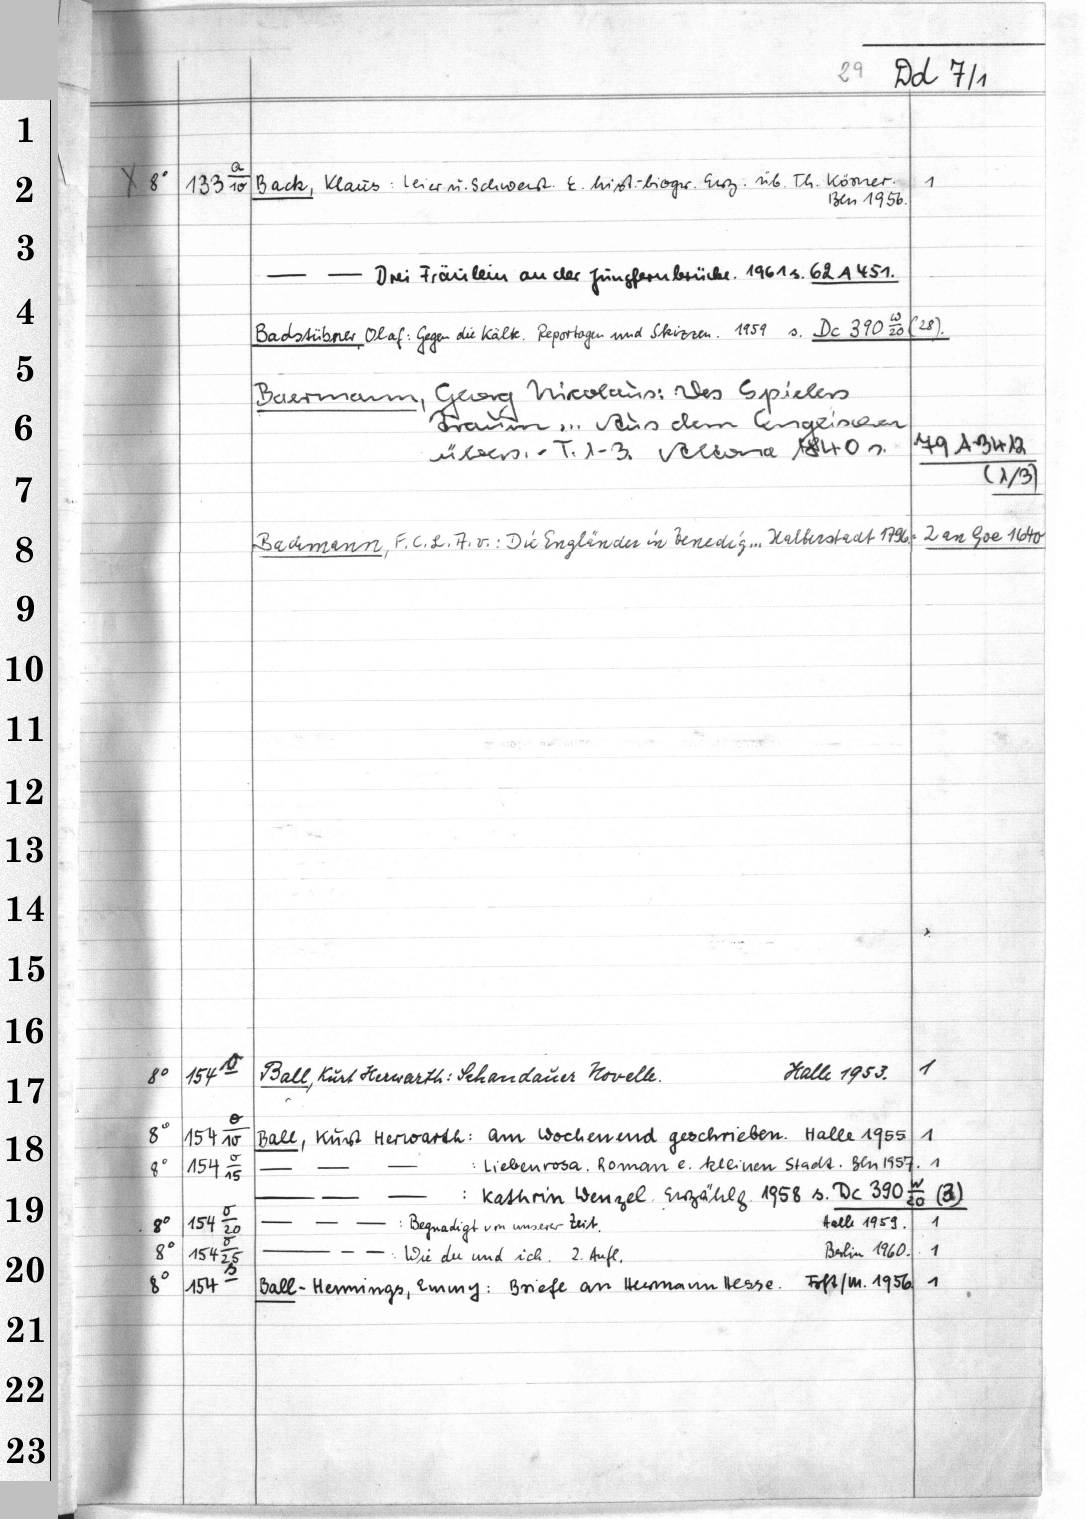 29 Dd 7/1
1
2 X 8° 133 a/10 Back, Klaus: Leier u. Schwert. E. hist.-biogr. Erz. üb. Th. Körner. 1
Bln 1956.
3
— — Drei Fräulein an der Jungfernbrücke. 1961 s. 62 A 451.
4 Badstübner, Olaf: Gegen die Kälte. Reportagen und Skizzen. 1959 s. Dc 390 w/20 (28).
5
Baermann, Georg Nicolaus: Des Spielers
6 Traum... Aus dem Englischen
übers. - T. 1-3. Altona 1840 s. 79 A 3412
7 (1/3)
8 Bachmann, F.C.L.A.v.: Die Engländer in Venedig... Halberstadt 1796 = 2 an Goe 1640
9
10
11
12
13
14
15
16
17 8° 154 Ball, Kurt Herwarth: Schandauer Novelle. Halle 1953. 1
18 8° 154 σ/10 Ball, Kurt Herwarth: Am Wochenend geschrieben. Halle 1955 1
8° 154 σ/15 — — — : Liebenrosa. Roman e. kleinen Stadt. Bln 1957. 1
19 — — — : Kathrin Wenzel. Erzählg. 1958 s. Dc 390 w/20 (3)
8° 154 σ/20 — — — : Begnadigt von unserer Zeit. Halle 1959. 1
8° 154 σ/25 — — — : Wie du und ich. 2. Aufl. Berlin 1960. 1
20 8° 154 Ball-Hennings, Emmy: Briefe an Hermann Hesse. Fft/M. 1956 1
21
22
23